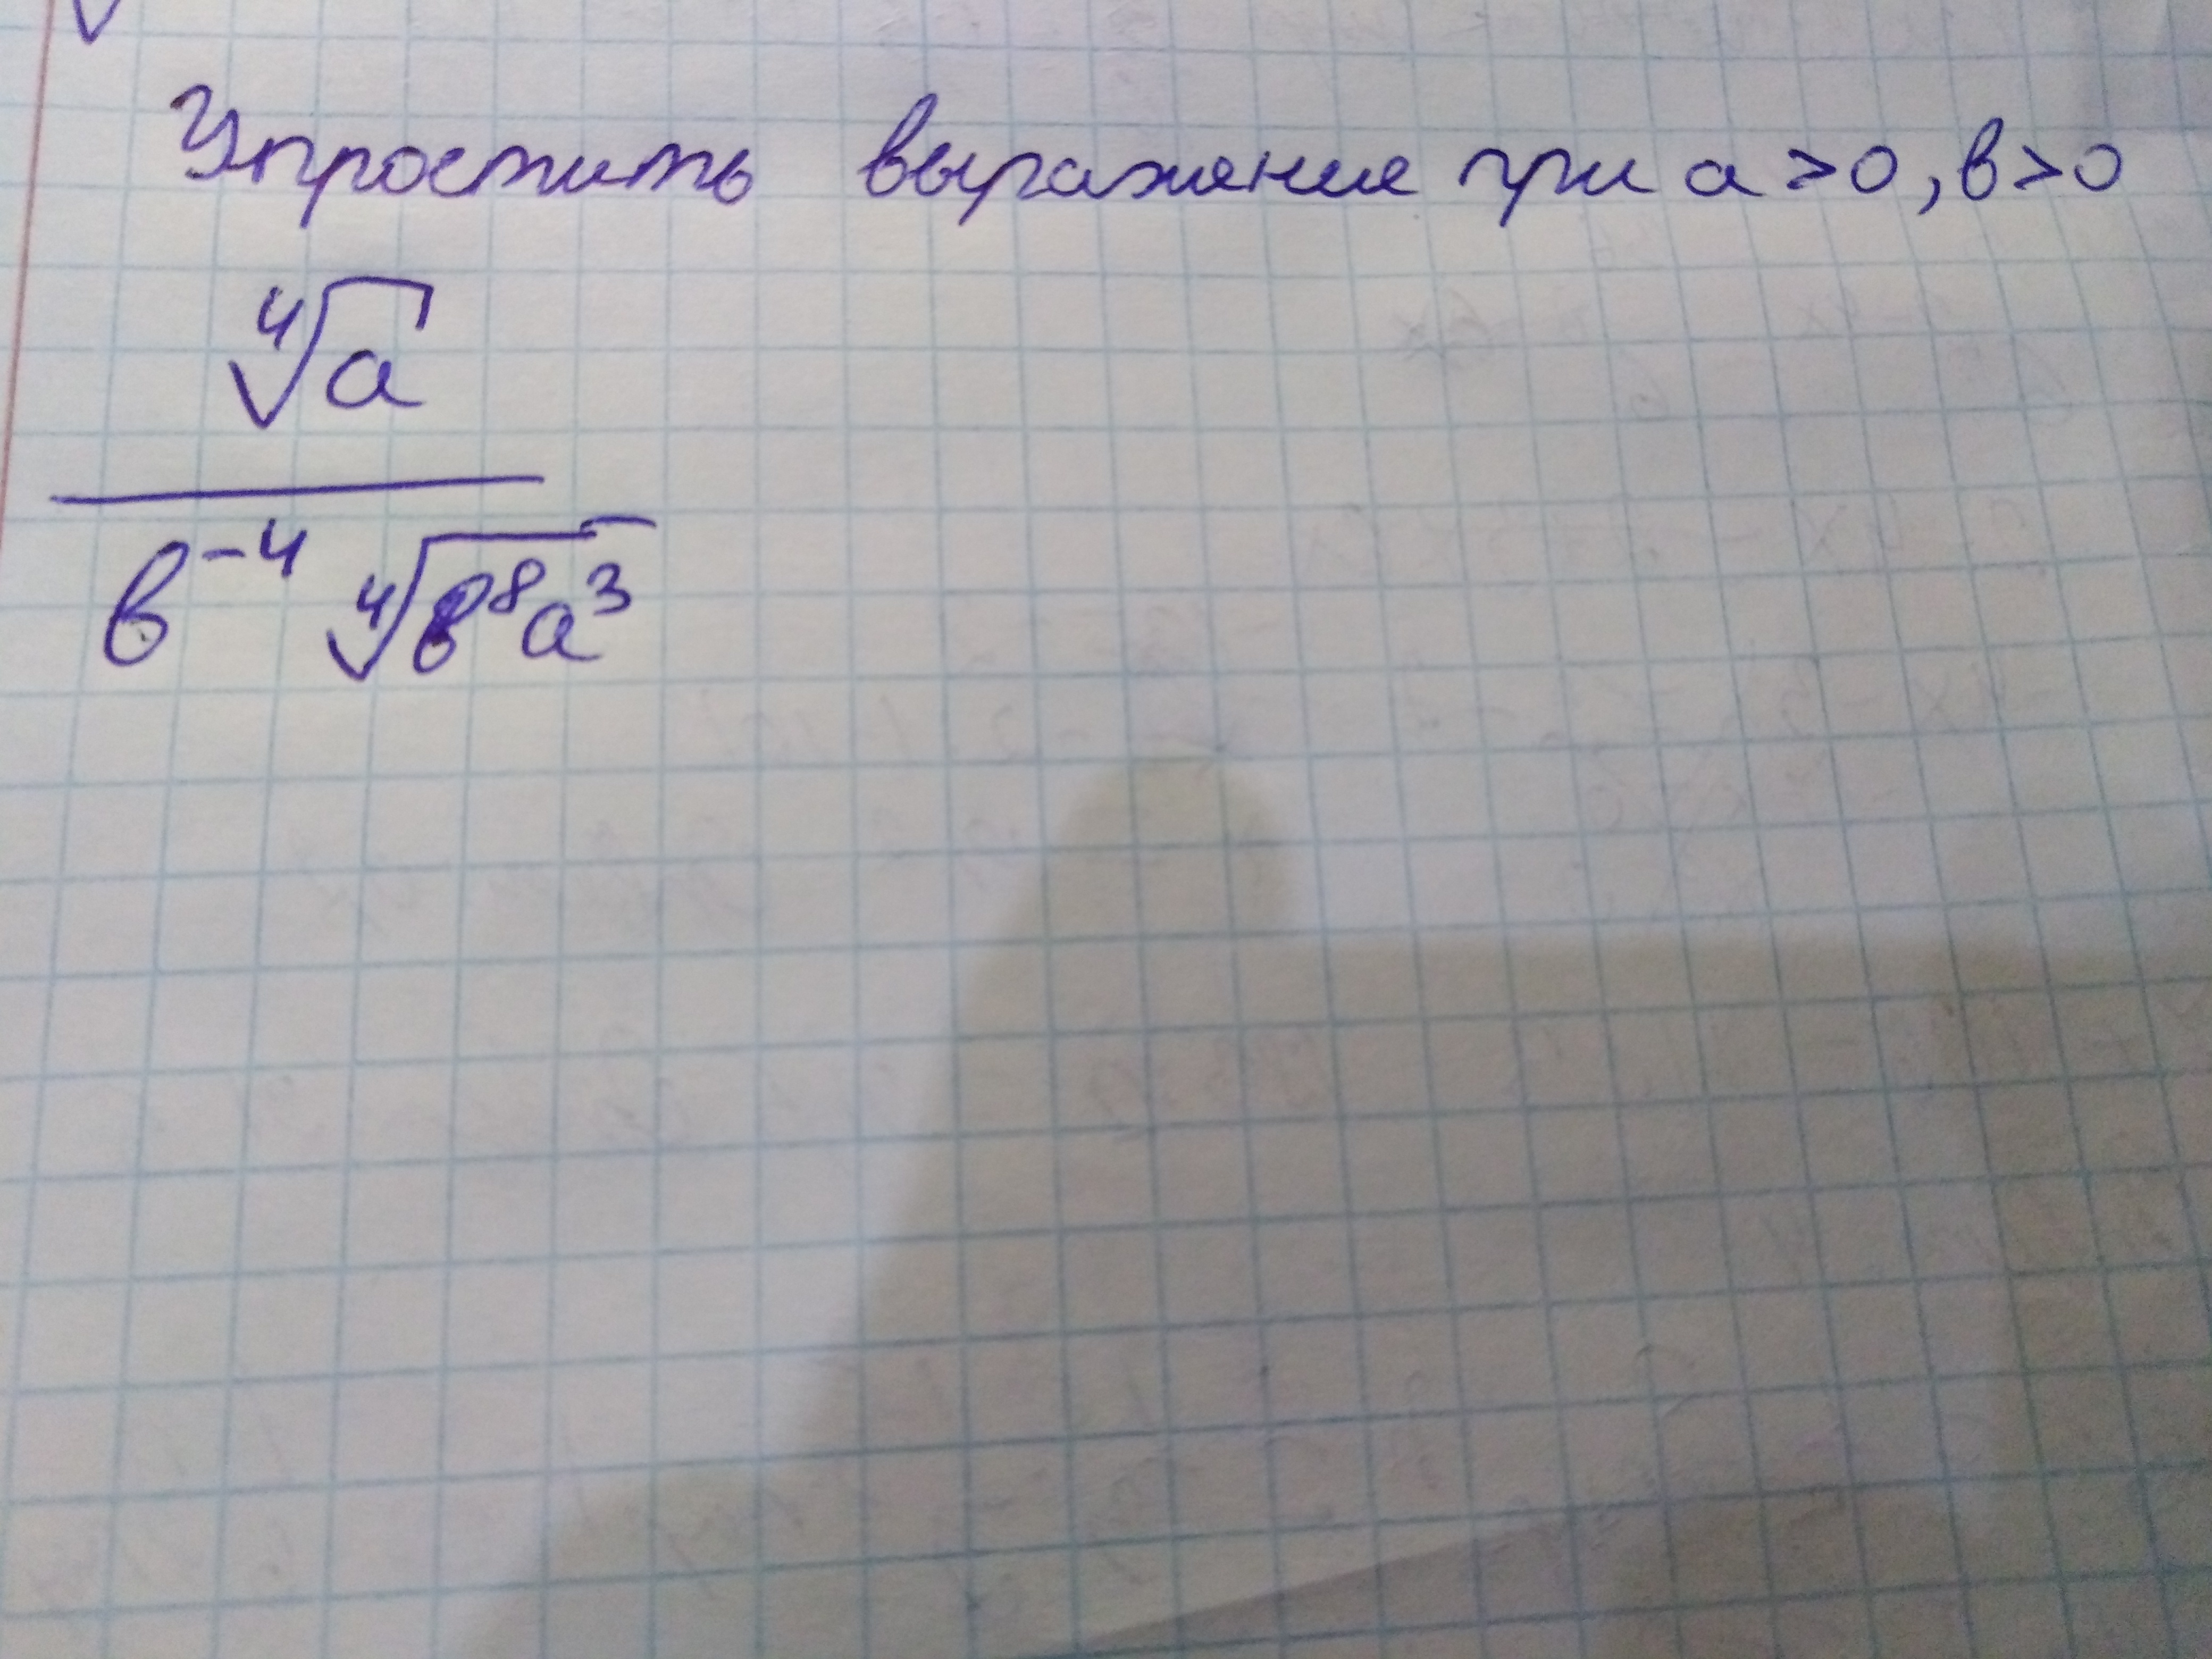 Упростить выражение при a > 0, в > 0
⁴√a
в⁻⁴ ⁴√в⁸a³